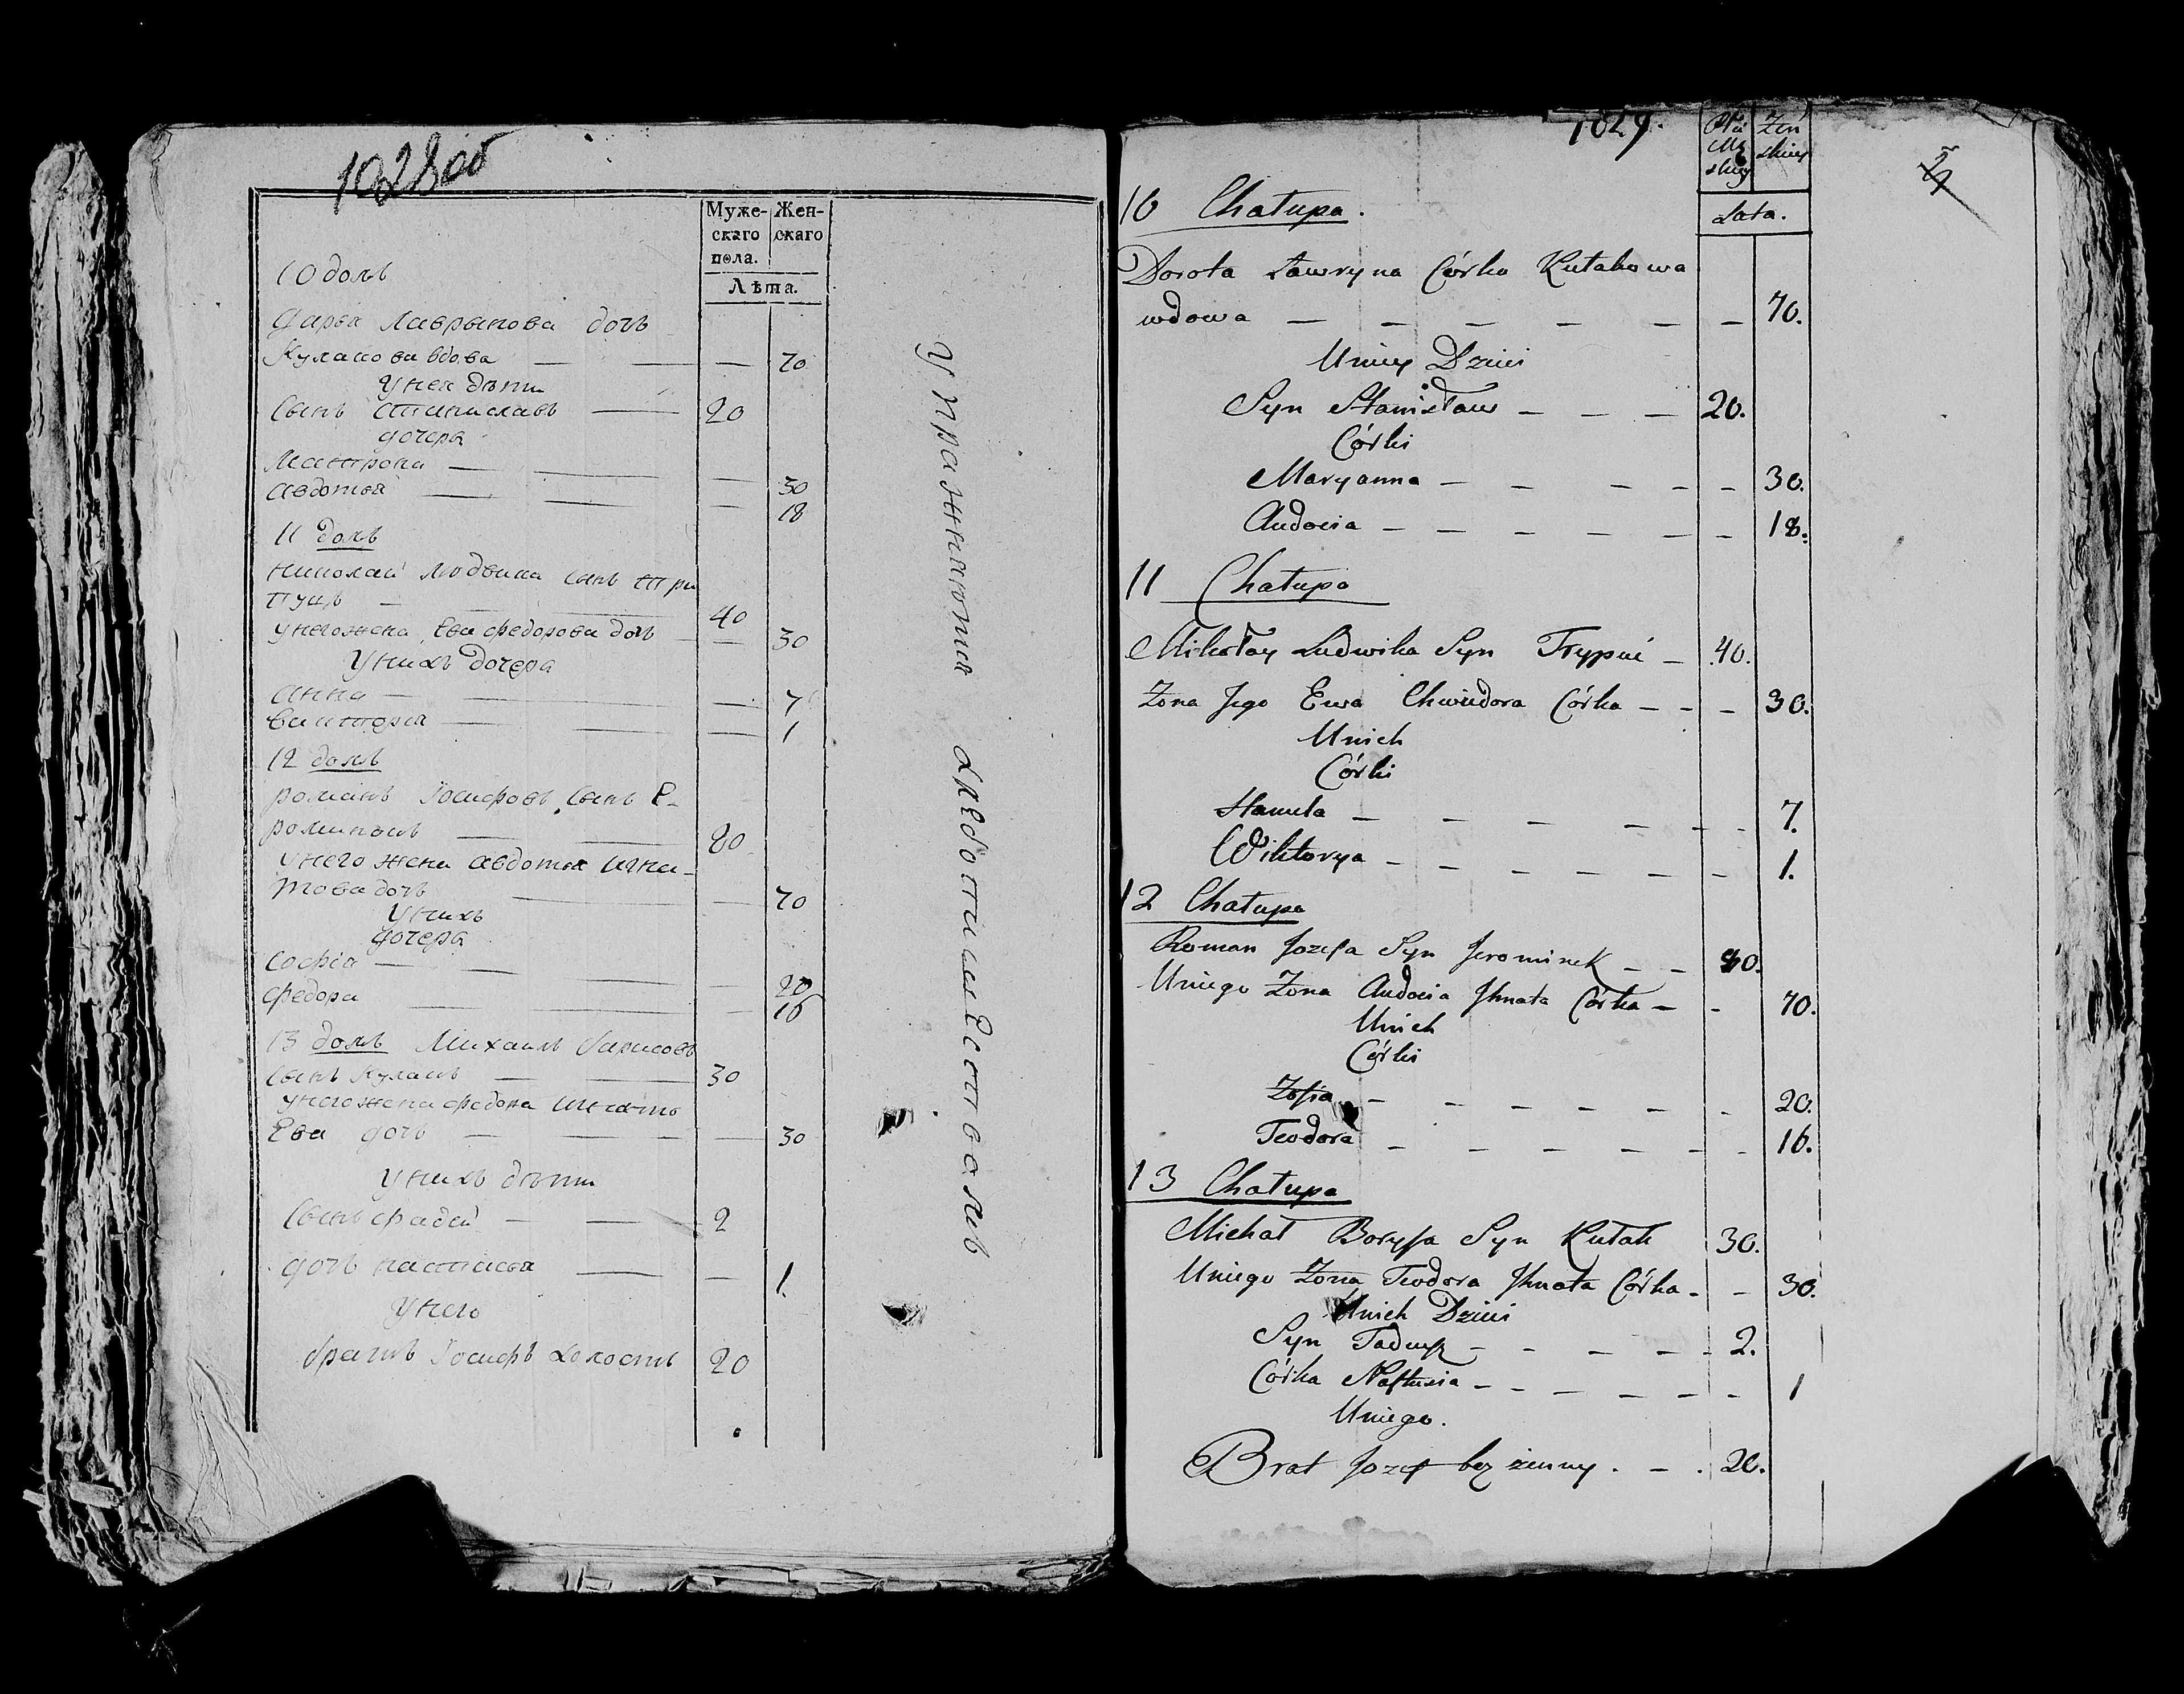 1028 об
Муже- Жен-
скаго скаго
пола.
Лѣта.
10 домъ
Дарья Лаврынова дочь
Кулакова вдова — — — 70
У нея дѣти
Сынъ Станиславъ — 20
дочера
Матрона — — — 30
Авдотья — — — 18
11 домъ
Николай Людвика сынъ Три
пуць — — 40
у него жена Ева Федорова дочь — 30
У нихъ дочера
Анна — — — 7
Викторія — — — 1
12 домъ
Романъ Іосифовъ сынъ Е-
роминокъ — — 80
у него жена Авдотья Игна-
това дочь — — 70
У нихъ
дочера
Софія — — — 20
Федора — — — 16
13 домъ Михаилъ Барисовъ
сынъ Кулакъ — — 30
у него жена Федора Игнато
Ева дочь — — — 30
У нихъ дѣти
Сынъ Фадей — — 2
дочь Настасья — — 1.
У него
братъ Іосифъ холостъ 20
Упражняются хлѣбопашествомъ
1029.
Płci Żeń
Mę skiey
skiey
Lata.
10 Chałupa.
Dorota Ławryna Córka Kułakowa
wdowa — — — — — — 70.
Uniey Dzieci
Syn Stanisław — — — 20.
Córki
Maryanna — — — — — 30.
Audocia — — — — — — 18.
11 Chałupa
Mikołay Ludwika Syn Trypuć — 40.
Żona Jego Ewa Chwiedora Córka — — — 30.
Unich
Córki
Hanula — — — — — — 7.
Wiktorya — — — — — — 1.
12 Chałupa
Roman Jozefa Syn Jerominek — — 80.
Uniego Żona Audocia Jhnata Córka — - 70.
Unich
Córki
Zofia — — — — — — 20.
Teodora — — — — — — 16.
13 Chałupa
Michał Borysa Syn Kułak 30.
Uniego Żona Teodora Jhnata Córka - - 30.
Unich Dzieci
Syn Tadeusz — — — — — 2.
Córka Nastusia — — — — — — 1
Uniego.
Brat Jozef bez żenny . — . 20.